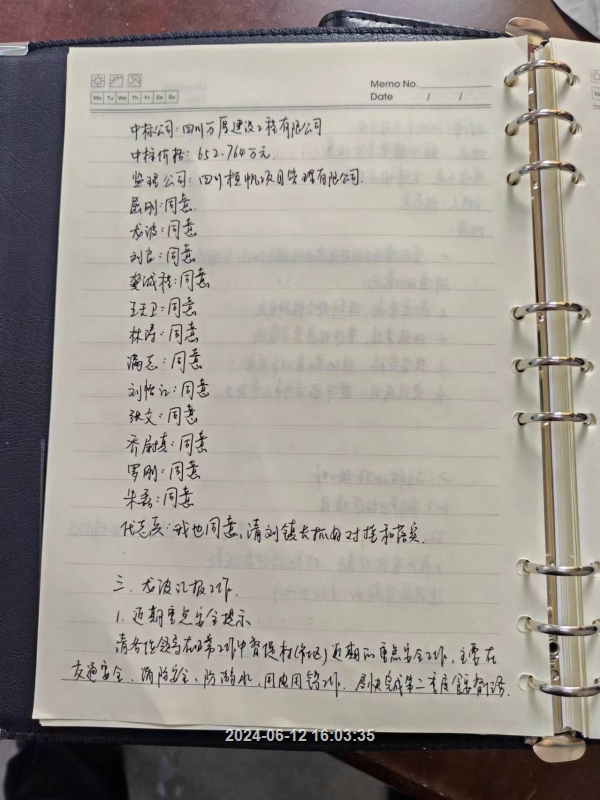 Memo No.
Mo Tu We Th Fr Sa Su
Date / /
中标公司:四川万厦建设工程有限公司
中标价格:652.764万元.
监理公司:四川桓帆项目管理有限公司.
屈刚:同意.
龙波:同意.
刘良:同意.
樊诚程:同意
王天卫:同意
林涛:同意
满志:同意
刘怡江:同意
张文:同意
乔尉真:同意
罗刚:同意
朱磊:同意
代志兵:我也同意,请刘镇长抓好对接和落实.
三、龙波汇报工作.
1.近期重点安全提示
请各位领导在日常工作中督促村(社区)近期的重点安全工作,主要在
交通安全、消防安全、防溺水、用电用气工作.尽快完成第二季度食安督导任务.
2024-06-12 16:03:35